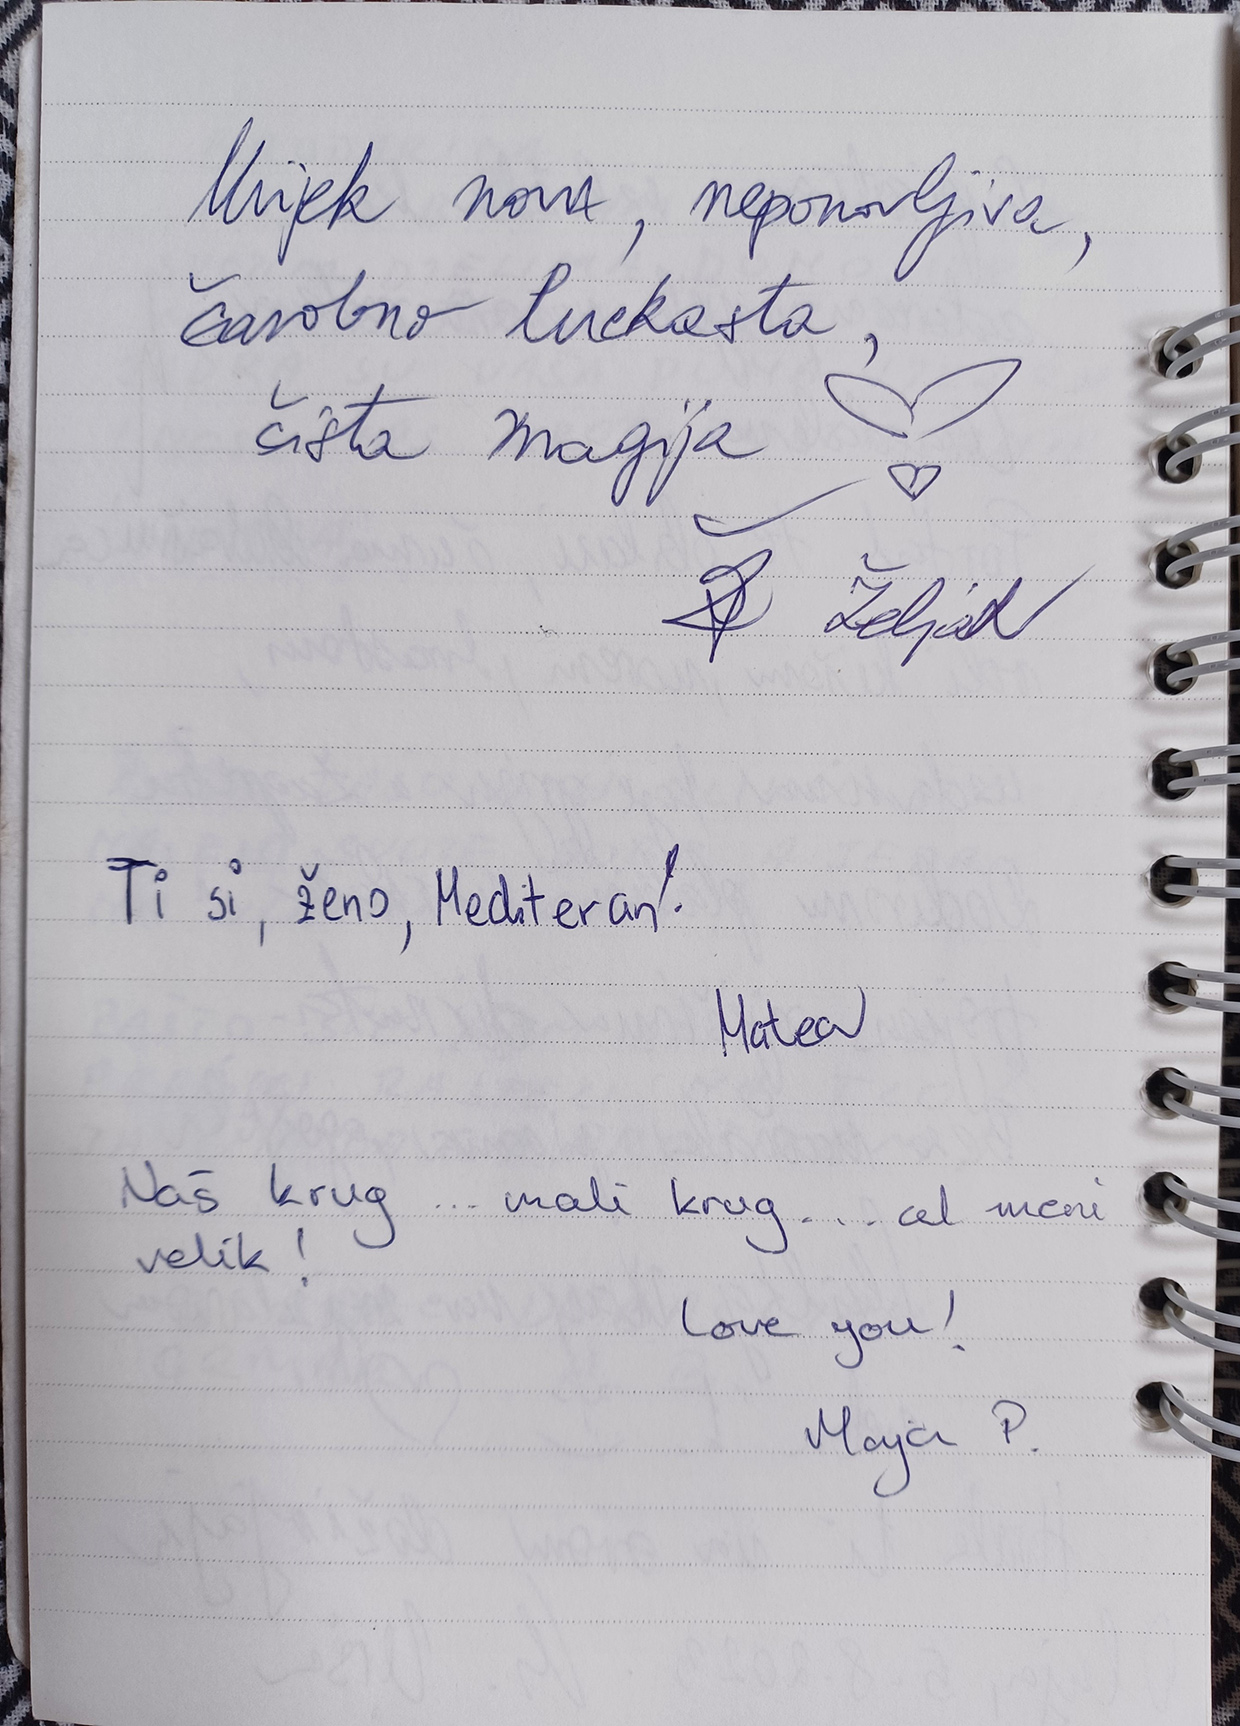 Uvijek nova, neponovljiva,
čarobno luckasta,
čista magija
Željka
Ti si, ženo, Mediteran!
Matea
Naš krug ... mali krug .... al meni
velik!
Love you!
Maja P.